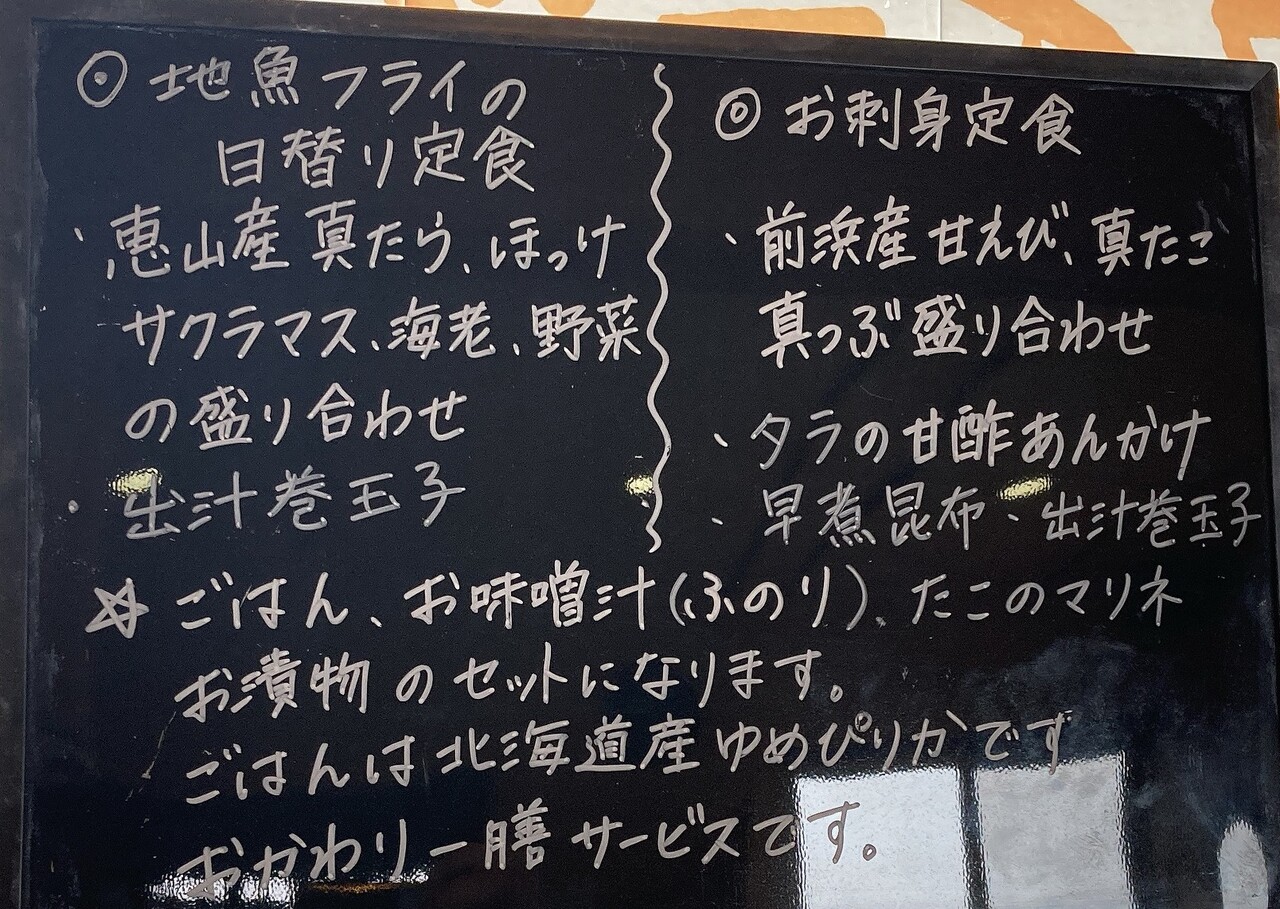 ◉ 地魚フライの
日替り定食
、恵山産 真たら、ほっけ
サクラマス、海老、野菜
の盛り合わせ
・出汁巻玉子
◎ お刺身定食
、前浜産 甘えび、真たこ
真つぶ 盛り合わせ
、タラの甘酢あんかけ
、早煮昆布・出汁巻玉子
☆ ごはん、お味噌汁(ふのり)、たこのマリネ
お漬物のセットになります。
ごはんは北海道産ゆめぴりかです
おかわり一膳サービスです。